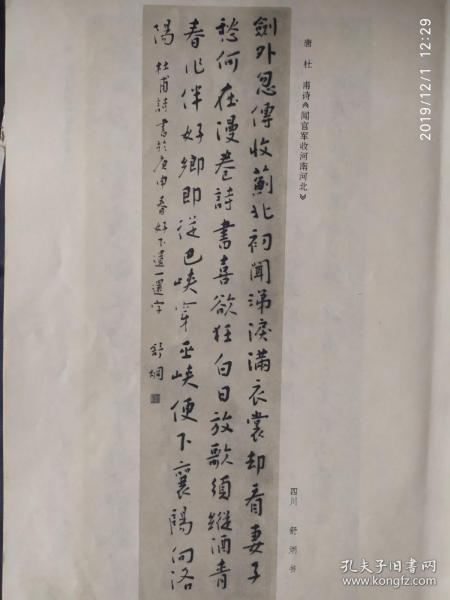 2019/12/1 12:29
唐 杜 甫诗《闻官军收河南河北》
劍外忽傳收薊北初聞涕淚滿衣裳却看妻子
愁何在漫卷詩書喜欲狂白日放歌須縱酒青
春作伴好鄉即從巴峽穿巫峽便下襄陽向洛
陽 杜甫詩 書於庚申春好下遺一還字 舒炯
四川 舒炯书
孔夫子旧书网